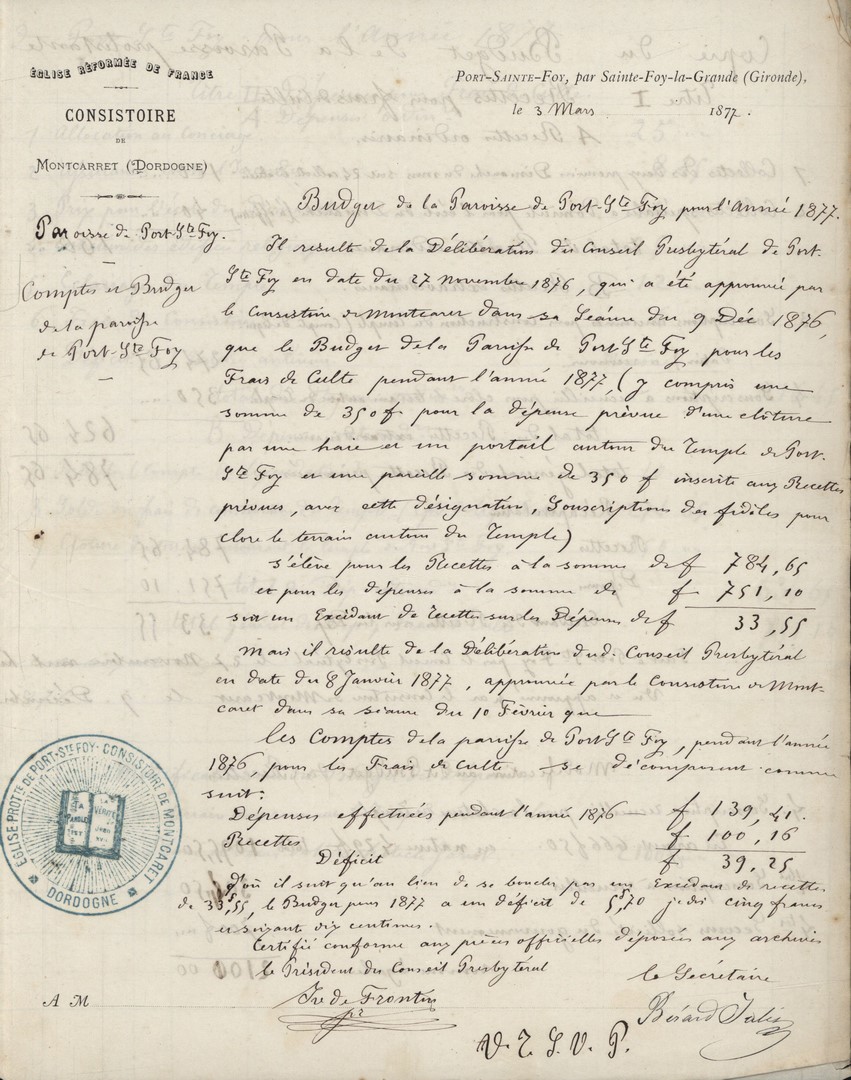 ÉGLISE RÉFORMÉE DE FRANCE
CONSISTOIRE
DE
MONTCARRET (DORDOGNE)
PORT-SAINTE-FOY, par Sainte-Foy-la-Grande (Gironde),
le 3 Mars 1877.
Budget de la Paroisse de Port-Ste Foy pour l'Année 1877.
Paroisse de Port-Ste Foy.
Comptes et Budget
de la paroisse
de Port-Ste Foy
Il resulte de la Délibération du Conseil Presbytéral de Port-
Ste Foy en date du 27 Novembre 1876, qui a été approuvée par
le Consistoire de Montcaret dans sa Séance du 9 Déc 1876,
que le Budget de la Paroisse de Port-Ste Foy pour les
Frais de Culte pendant l'année 1877, (y compris une
somme de 350 f. pour la dépense prévue d'une clôture
par une haie et un portail autour du Temple de Port-
Ste Foy et une pareille somme de 350 f inscrite aux Recettes
prévues, avec cette désignation, Souscriptions des fidèles pour
clore le terrain autour du Temple)
s'élève pour les Recettes à la somme de f 784,65
et pour les dépenses à la somme de f 751,10
soit un Excédant de recettes sur les Dépenses de f 33,55
Mais il résulte de la Délibération dud. Conseil Presbytéral
en date du 8 Janvier 1877, approuvée par le Consistoire de Mont-
caret dans sa séance du 10 Février que
les Comptes de la paroisse de Port-Ste Foy, pendant l'année
1876, pour les Frais de Culte se décomposent comme
suit:
Dépenses effectuées pendant l'année 1876 — f 139,41.
Recettes f 100,16
Déficit f 39,25
D'où il suit qu'au lieu de se boucler par un Excédant de recettes
de 33f,55, le Budget pour 1877 a un déficit de 5f,70 je dis cinq francs
et soixante dix centimes.
Certifié conforme aux pièces officielles déposées aux archives
le Président du Conseil Presbytéral
le Secrétaire
de Frontin
pr
Bérard
A M
V. T. S. V. P.
ÉGLISE PROTTE DE PORT-STE FOY - CONSISTOIRE DE MONTCARET
DORDOGNE
LA VÉRITÉ